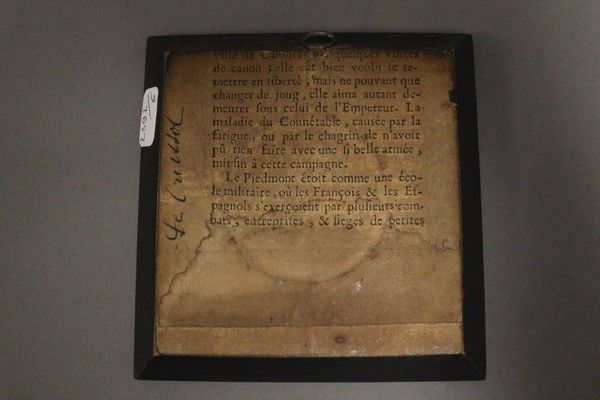 ville de par quelques volées
de canon ; elle eût bien voulu se re-
mettre en liberté, mais ne pouvant que
changer de joug, elle aima autant de-
meurer sous celui de l'Empereur. La
maladie du Connétable, causée par la
fatigue, ou par le chagrin de n'avoit
pû rien faire avec une si belle armée,
mit fin à cette campagne.
Le Piedmont étoit comme une éco-
le militaire, où les François & les Es-
pagnols s'exerçoient par plusieurs com-
bats, entreprises, & sieges de petites